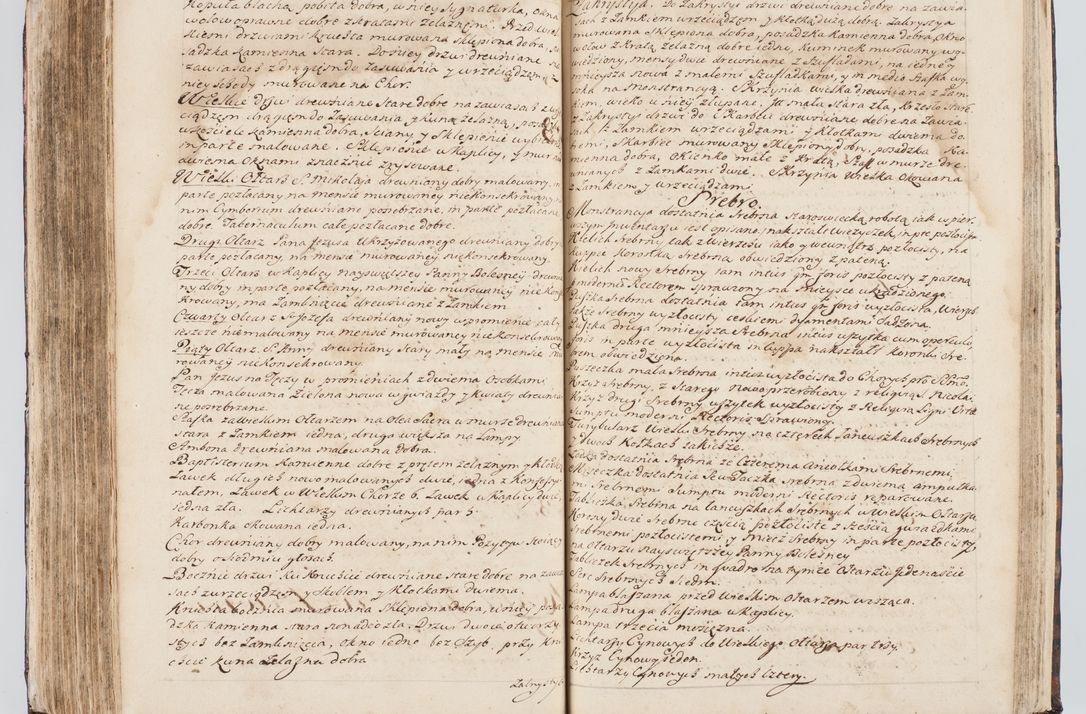 Kopuła blachą pobita dobra, w niey Sygnaturka, okna
wołowoprawne dobre z kratami żelaznemi. Przed wiel
kiemi drzwiami kruchta murowana sklepiona dobra, po
sadzka kamienna stara. Do niey drzwi drewniane na
zawiasach z drągiem do zasuwania y wrzeciądzem
niey schody murowane na Chor.
Wielkie drzwi drewniane stare dobre na zawiasach z wrze
ciądzem drągiem do zasuwania, y kuną żelazną, posadzka
w kościele kamienna dobra, ściany y sklepienie wybielone
in parte malowane. Sklepienie w kaplicy, y mur nad
dwiema oknami znacznie zrysowane.
Wielki Ołtarz S. Mikołaja drewniany dobry malowany, in
parte pozłacany na mensie murowaney niekonsekrowany
nim Cymborium drewniane posrebrzane, in parte pozłacane
dobre. Tabernaculum całe pozłacane dobre.
Drugi Ołtarz Pana Jezusa Ukrzyżowanego drewniany dobry
parte pozłacany, na mensie murowaney niekonsekrowany.
Trzeci Ołtarz w kaplicy nayswiętszey Panny Bolesney drewnia
ny dobry in parte pozłacany, na mensie murowaney niekonse
krowany, ma zamknięcie drewniane z zamkiem.
Czwarty Ołtarz S. Jozefa drewniany nowy w promienie cały
jeszcze niemalowany na mensie murowaney niekonsekrowany
Piąty Ołtarz S. Anny drewniany stary mały na mensie mu
rowaney niekonsekrowany.
Pan Jezus na Tęczy w promieniach z dwiema osobkami
Tęcza malowana zielona nowa w gwiazdy y kwiaty drewnia
ne posrebrzane.
Szafka za wielkim Ołtarzem na Olea Sacra w murze drewniana
stara z zamkiem jedna, druga większa na Lampy
Ambona drewniana malowana dobra.
Baptisterium kamienne dobre z prętem żelaznym y kłódką
Ławek długich nowo malowanych dwie, jedna z Konfesyo
nałem, Ławek w Wielkim Chórze 6. Ławek w kaplicy dwie,
jedna zła. Lichtarzy drewnianych par 5.
Karbonka okowana jedna.
Chor drewniany dobry malowany, na nim Pozytyw stoiący
dobry o siedmiu głosach.
Bocznie drzwi ku Kruchcie drewniane stare dobre na zawia
sach z wrzeciądzem y skoblem y kłotkami dwiema.
Kruchta boczna murowana sklepiona dobra, w niey posa
dzka kamienna stara ponadto zła. Drzwi dwoie otworzy
stych bez zamknięcia, okno jedno bez szyb, przy kru
chcie kuna żelazna dobra
Zakrystyi
Zakrystya. Do Zakrystyi drzwi drewniane dobre na zawia
sach z zamkiem wrzeciądzem y kłotką dużą dobrą. Zakrystya
murowana sklepiona dobra, posadzka kamienna dobra, okno
wołow z kratą żelazną dobre jedno, kominek murowany wy
wiedziony, mensy dwie drewniane z szufladami, na jedney
mnieysza nowa z małemi szufladkami, y in medio szafka wy
soka na Monstrancyą. Skrzynia wielka drewniana z zam
kiem, wieko u niey złupane. 3tia mała stara zła, krzesło stare
z Zakrystyi drzwi do Skarbcu drewniane dobre na zawia
sach z zamkiem wrzeciądzami y kłotkami dwiema do
bremi, Skarbiec murowany sklepiony dobry, posadzka ka
mienna dobra, okienko małe z kratą, szaf w murze dre
wnianych z zamkami dwie. Skrzynia wielka okowana
z zamkiem y wrzeciądzami
Srebro.
Monstrancya dostatnia srebrna staroswiecką robotą jak w pier
wszym inwentarzu jest opisano nakształt wieżyczek, in pte pozłocista
Kielich srebrny tak z wierzchu jako y wewnątrz pozłocisty, na
kuppe koronka srebrna obwiedziony z pateną.
Kielich nowy srebrny tam intus qm foris pozłocisty z pateną
a moderno Rectorem sprawiony na mieysce ukradzionego
Puszka srebrna dostatnia tam intus qm foris wyzłocista, wierzch
także srebrny wyzłocisty czeskiem dyamentami sadzona.
Puszka druga mnieysza srebrna intus wyzłtka cum operculo
foris in parte wyzłocista in Cuppa nakształt koronki sre
brem obwiedziona
Puszeczka mała srebrna intus wyzłocista do Chorych pro SSmo
Krzyż srebrny, z starego nowo przerobiony z religią S. Nicolai
Krzyż drugi srebrny w szytek wyzłocisty z Religią Ligni Vitæ
sumptu moderni Rectoris sprawiony.
Turybularz Wielki srebrny na czterech łancuszkach srebrnych
y dwoch kółkach takichże.
Łódka dostatnia srebrna ze czterema aniołkami srebrnemi
Miseczka dostatnia seu Taczka srebrna z dwiema ampułka
mi srebrnemi sumptu moderni Rectoris reparowane.
Tabliczka srebrna na łancuszkach srebrnych w wielkim Ołtarzu
Korony dwie srebrne częścią pozłociste z sześcią gwiazdkami
srebrnemi pozłocistemi y miecz srebrny in parte pozłocisty
na Ołtarzu Nayswiętszey Panny Bolesney
Tabliczek srebrnych in quadro na tymże Ołtarzu jedenaście
Serc srebrnych siedm.
Lampa blaszana przed wielkim Ołtarzem wisząca.
Lampa druga blaszana w kaplicy.
Lampa trzecia mosiężna.
Lichtarzy Cynowych do Wielkiego Ołtarza par trzy.
Krzyż Cynowy jeden.
Lichtarzy Cynowych małych cztery.